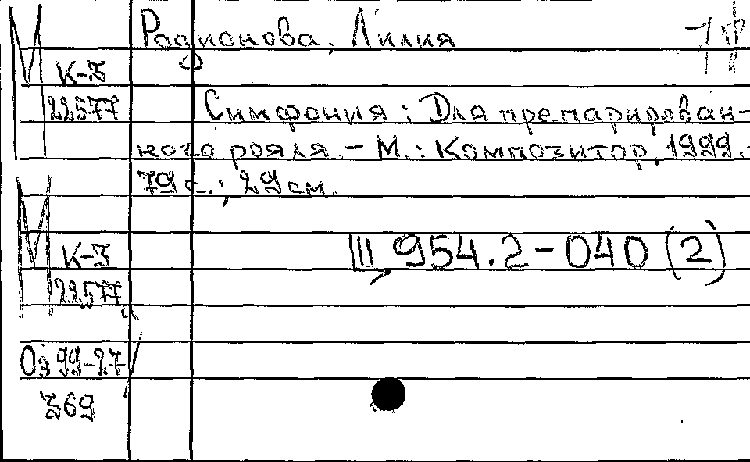 М
Родионова, Лилия
1ф
К-3
22577
Симфония: Для препарирован-
ного рояля. - М.: Композитор, 1999.-
79 с.; 29 см.
М
К-3
22577
Щ954.2-040(2)
Оз 99-27/
369